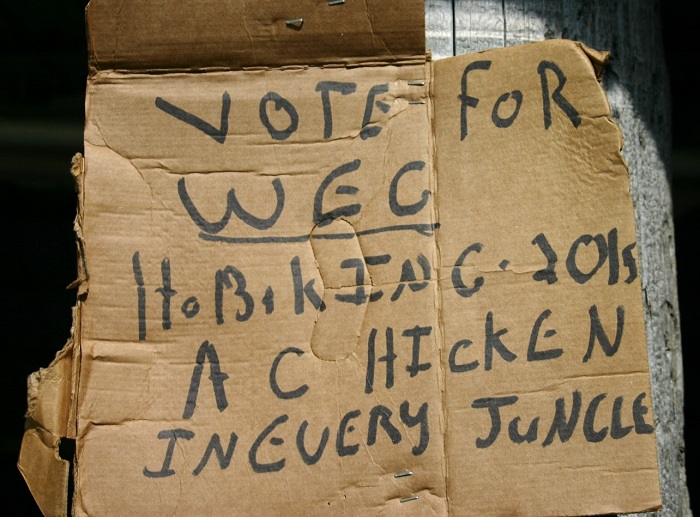 VOTE FOR
WEG
HoBokING. 2015
A CHICKEN
IN EVERY JuNGLE